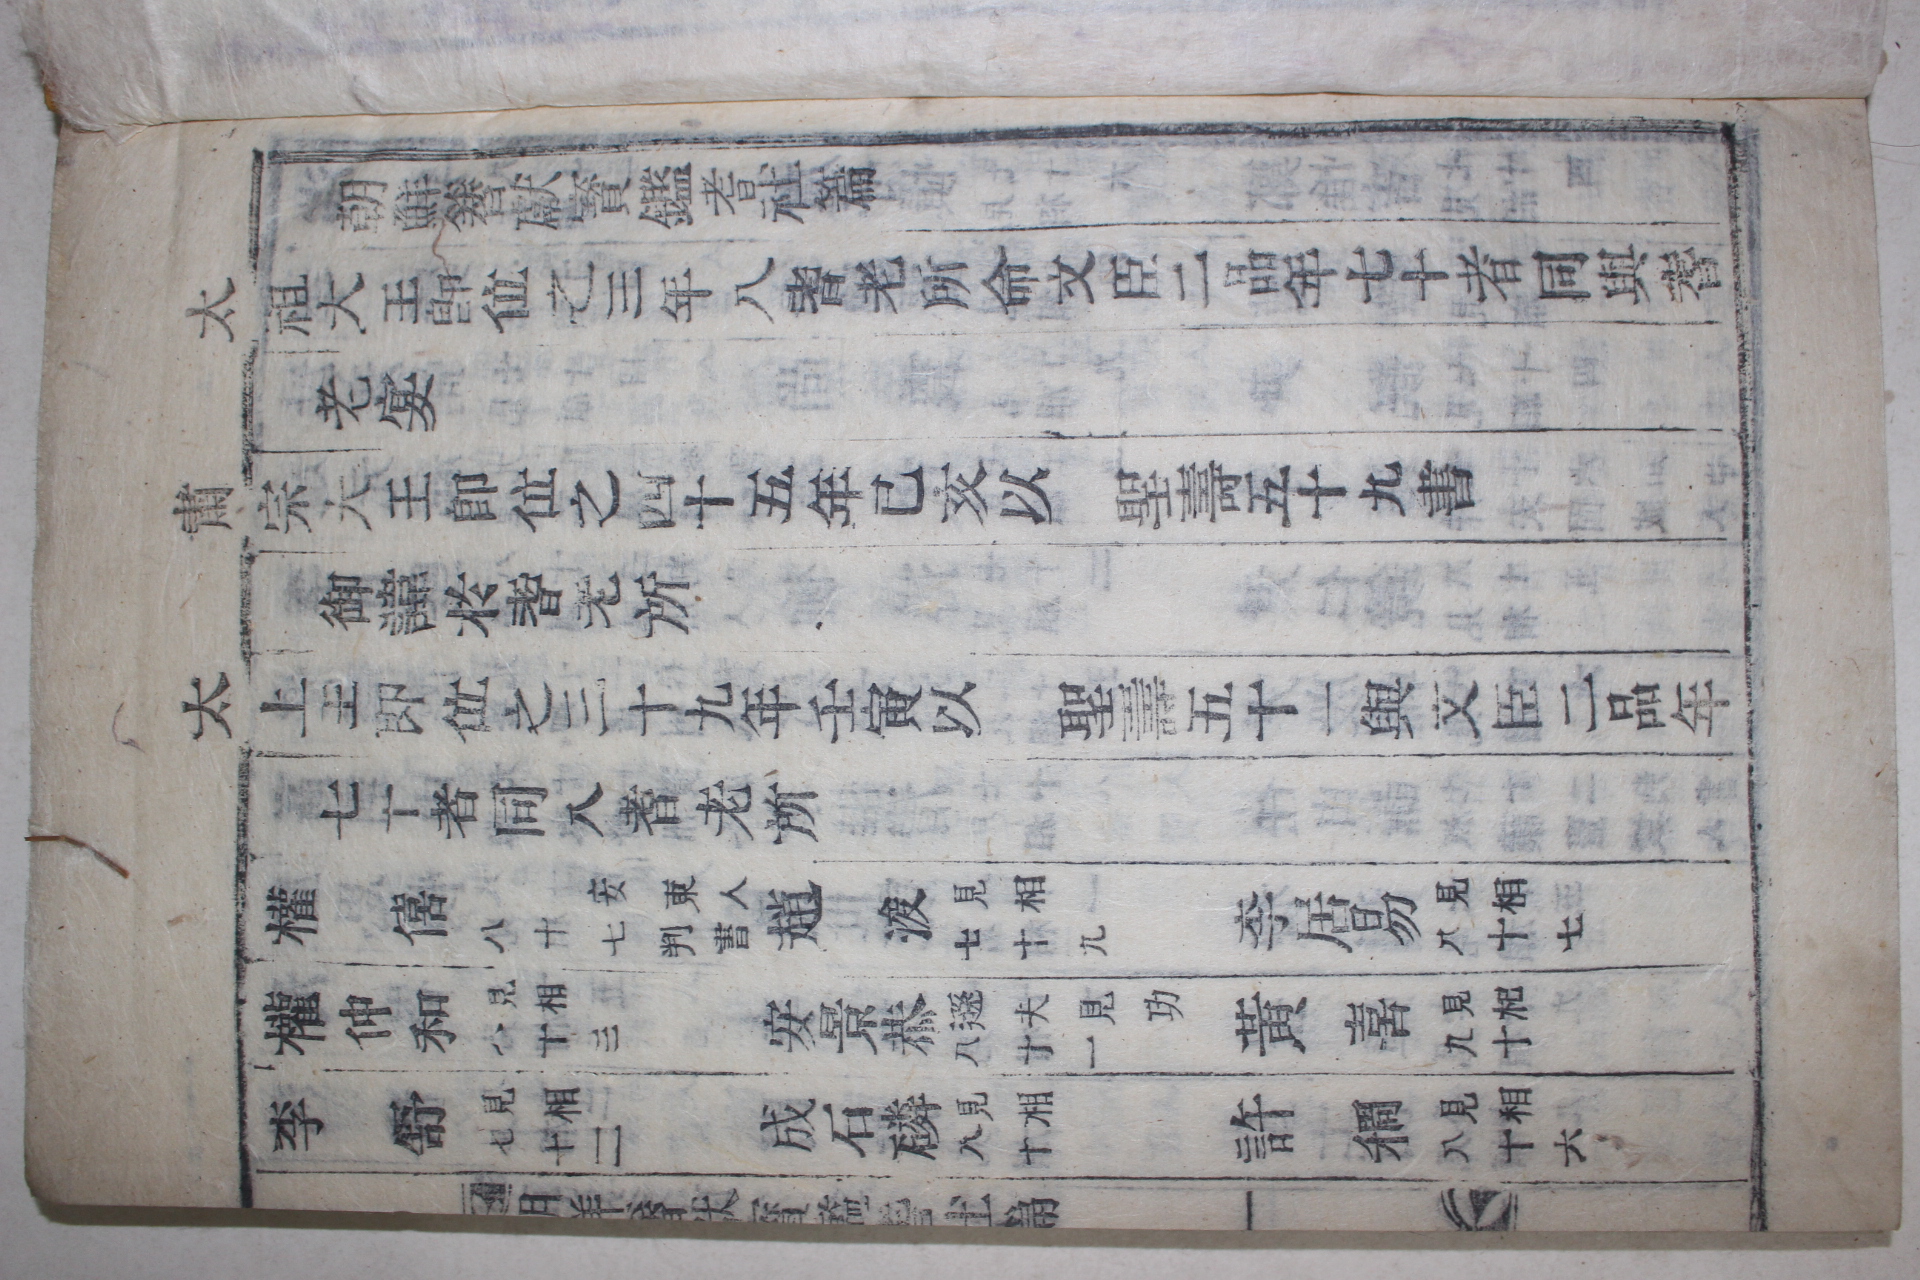 朝鮮簪獻寶鑑耆社篇
太祖大王卽位之三年入耆老所命文臣二品年七十者同與耆
老宴
肅宗大王卽位之四十五年己亥以　聖壽五十九書
御諱於耆老所
太上王卽位之三十九年壬寅以　聖壽五十一與文臣二品年
七十者同入耆老所
權僖 安東人 八十七判書　趙浚 見相 七十九　李居易 見相 八十七
權仲和 見相 八十三　安景恭 遜夫見功 八十一　黃喜 見相 九十
李舒 見相 七十二　成石磷 見相 八十　許稠 見相 八十六
朝鮮簪獻寶鑑耆社篇　一